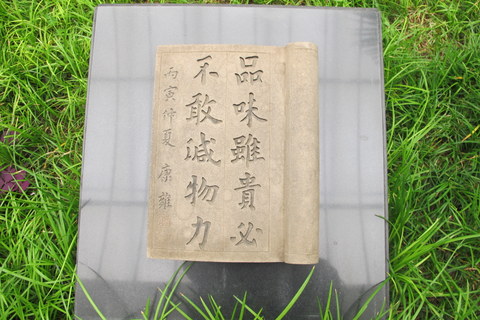 品味雖貴必
不敢減物力
丙寅仲夏 康雍